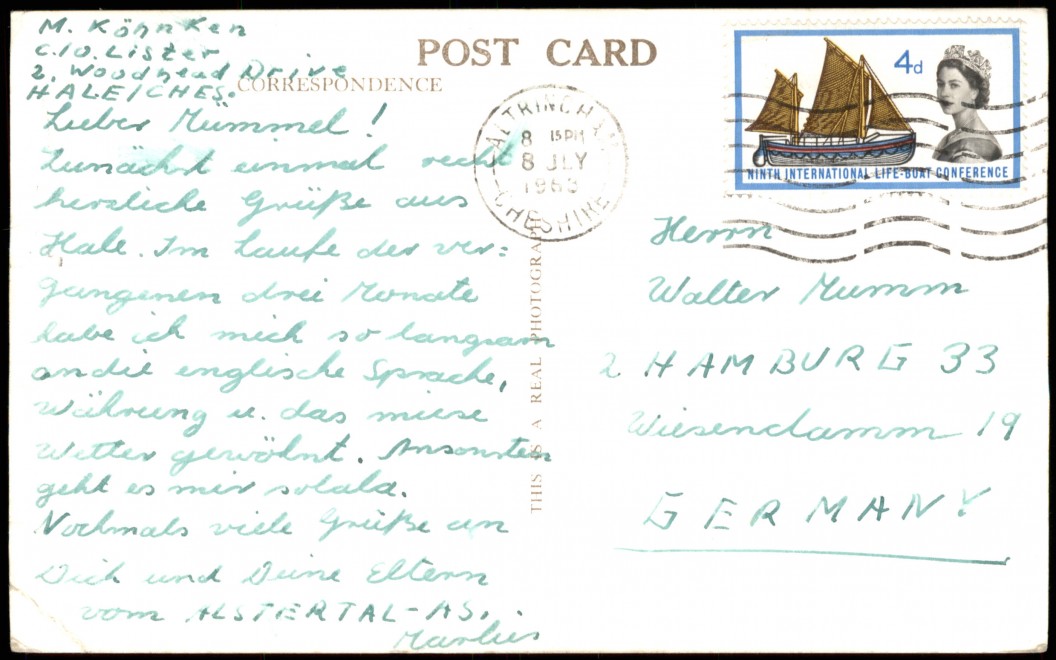 M. Köhnken
C.I.O. Lister
2, Woodhead Drive
HALE/CHES.
POST CARD
CORRESPONDENCE
Lieber Mümmel!
Zunächst einmal recht
herzliche Grüße aus
Hale. Im Laufe der ver=
gangenen drei Monate
habe ich mich so langsam
an die englische Sprache,
Währung u. das miese
Wetter gewöhnt. Ansonsten
geht es mir solala.
Nochmals viele Grüße an
Dich und Deine Eltern
vom ALSTERTAL-AS.
Marlies
THIS IS A REAL PHOTOGRAPH
ALTRINCHAM
8 15 PM
8 JLY
1963
CHESHIRE
4d
NINTH INTERNATIONAL LIFE-BOAT CONFERENCE
Herrn
Walter Mumm
2 HAMBURG 33
Wiesendamm 19
GERMANY